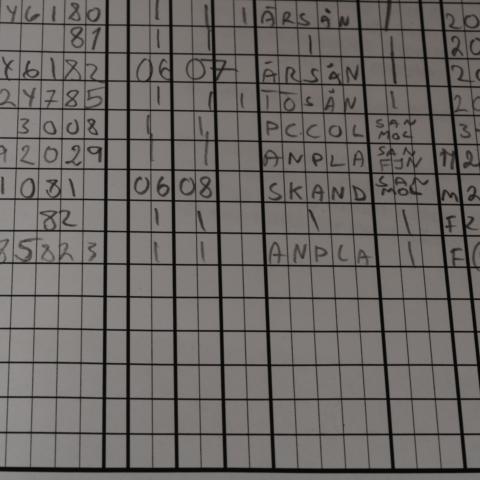 46180 | | 1 ÄRSÄN | 20
81 | | | 20
46182 06 07 ÄRSÄN | 20
24785 | | 1 TOSÄN | 20
3008 | | PCCOL SAN MOC 3
92029 | | ANPLA SAN FJN M2
1081 06 08 SKAND SAC MOC M2
82 | | | | F2
85823 | | ANPLA | F